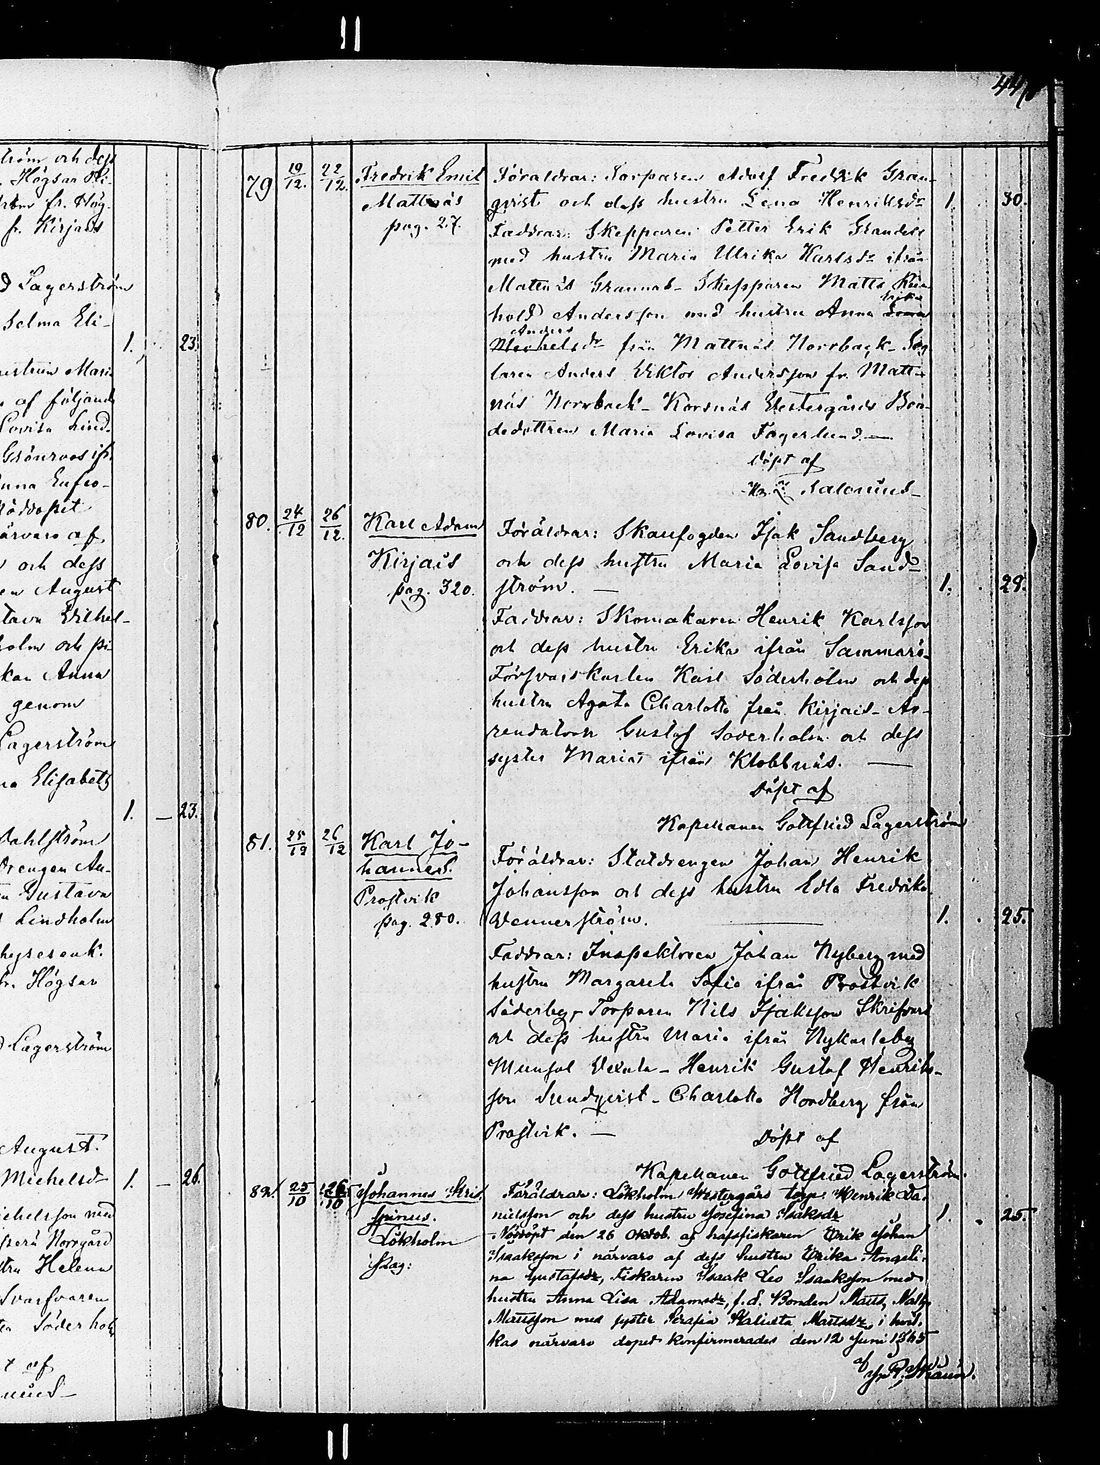 ström och dess
Högsar
fr. Kirjais
Lagerström
Selma Eli-
1. 23.
hustrun Maria
af följande
Lovisa Lind-
Grönroos ifr.
Anna Eufro-
Nöddöpt
närvaro af
och dess
August
Gustava Vilhel-
holm och pi-
kan Anna
genom
Lagerström
Elisabeth
1. — 23.
Dahlström
Drengen An-
Gustava
Lindholm
fr. Högsar
Lagerström
August.
Michelsdr 1. — 26.
Michelsson med
Norrgård
Helena
Svarfvaren
Söderholm
af
79 19/12. 22/12. Fredrik Emil Föräldrar: Torparen Adolf Fredrik Gran-
Mattnäs qvist och dess hustru Lena Henriksdr 1. 30.
pag. 27. Faddrar: Skepparen Petter Erik Grandell
med hustru Maria Ulrika Karlsdr ifrån
Mattnäs Grannas - Skepparen Matts Rein
hold Andersson med hustru Anna Erika
Anders
dr från Mattnäs Norrback -
laren Anders Viktor Andersson fr. Matt-
näs Norrback - Korsnäs Westergårds Bon-
dedottren Maria Lovisa Fagerlund —
Döpt af
Salenius —
80. 24/12 26/12. Karl Adam Föräldrar: Skaufogden Isak Sandberg
Kirjais och dess hustru Maria Lovisa Sand-
pag. 320. ström. — 1. 29.
Faddrar: Skomakaren Henrik Karlsson
och dess hustru Erika ifrån Sammarö -
Försvarskarlen Karl Söderholm och dess
hustru Agata Charlotta från Kirjais - Ar-
rendatorn Gustaf Söderholm och dess
syster Maria ifrån Klobbnäs. —
Döpt af
Kapellanen Gottfried Lagerström
81. 25/12 26/12 Karl Jo-
hannes. Föräldrar: Statdrengen Johan Henrik
Prostvik Johansson och dess hustru Edla Fredrika
pag. 280. Wennerström. — 1. 25.
Faddrar: Inspektoren Johan Nyberg med
hustru Margareta Sofia ifrån Prostvik
Söderby - Torparen Nils Isaksson Skrifvars
och dess hustru Maria ifrån Nykarleby
Munsal - Henrik Gustaf Henriks-
son Sundqvist - Charlotta Nordberg från
Prostvik. —
Döpt af
Kapellanen Gottfried Lagerström.
82. 25/10 26/10 Johannes Kris- Föräldrar: Lökholm Westergårs torp. Henrik Da-
pinus. nielsson och dess hustru Josefina Isaksdr 1. 25.
Lökholm Nöddöpt den 26 Oktob. af hafsfiskaren Erik Johan
pag: Isaaksson i närvaro af dess hustru Erika Angeli-
na Gustafsdr, Fiskaren Isaak Leo Isaaksson med
hustru Anna Lisa Adamsdr, f.d. Bonden Matts
Mattsson med syster Serafia Kalista Mattsdr, i hvil-
kas närvaro dopet konfirmerades den 12 Juni 1865
af